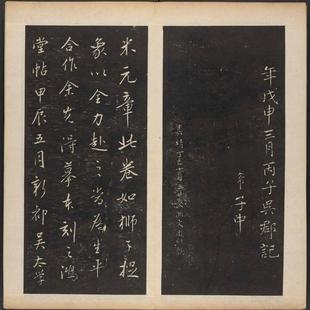 年戊申三月丙子吳郡記
子中
米元章此卷如獅子捉
象以全力赴之當爲生平
合作余先得摹本刻之鴻
堂帖甲辰五月新都吳太學